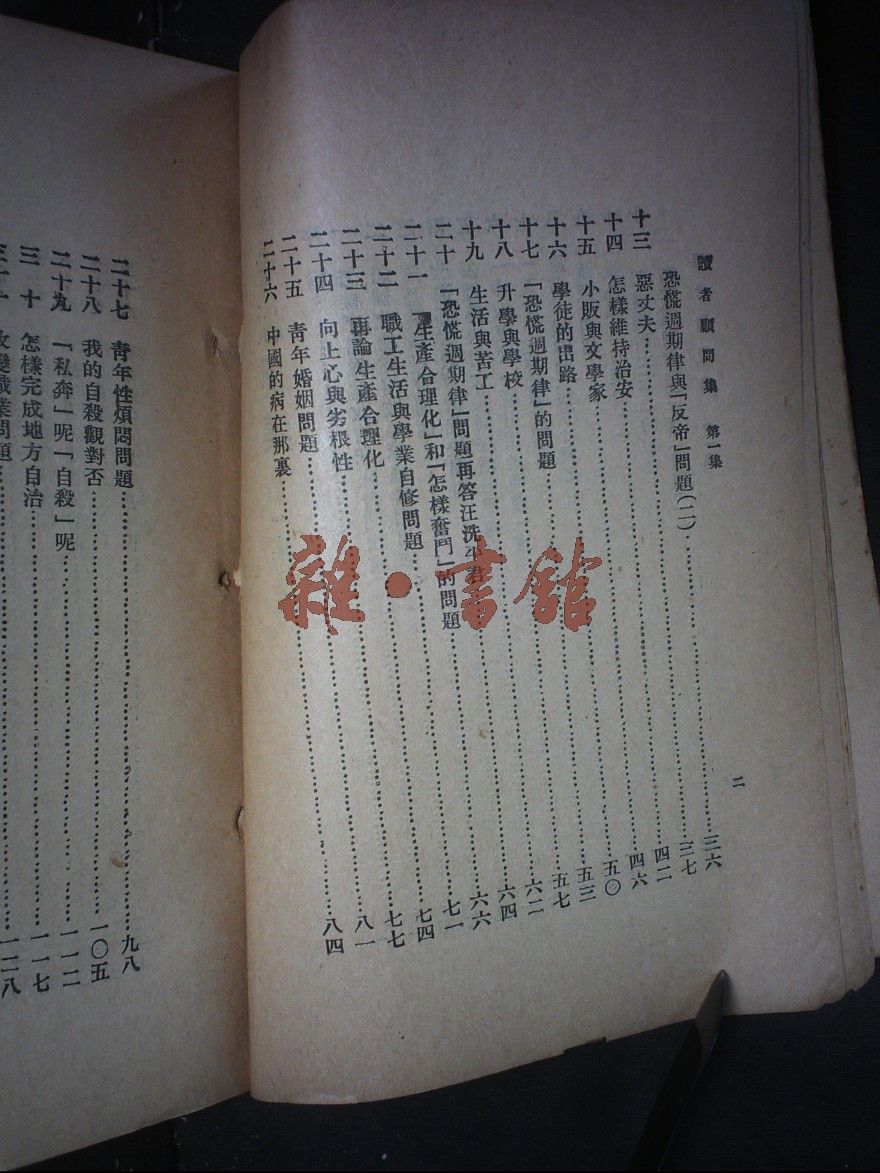 讀者顧問集 第一集 二
恐慌週期律與「反帝」問題(二)……三六
十三 惡丈夫……三七
十四 怎樣維持治安……四二
十五 小販與文學家……四六
十六 學徒的出路……五〇
十七 「恐慌週期律」的問題……五三
十八 升學與學校……五七
十九 生活與苦工……六二
二十 「恐慌週期律」問題再答汪洗君……六四
二十一 「生產合理化」和「怎樣奮鬥」的問題……六六
二十二 職工生活與學業自修問題……七一
二十三 再論生產合理化……七四
二十四 向上心與劣根性……七七
二十五 青年婚姻問題……八一
二十六 中國的病在那裏……八四
二十七 青年性煩悶問題……九八
二十八 我的自殺觀對否……一〇五
二十九 「私奔」呢「自殺」呢……一一二
三十 怎樣完成地方自治……一一七
變職業問題……一二八
雜·書館